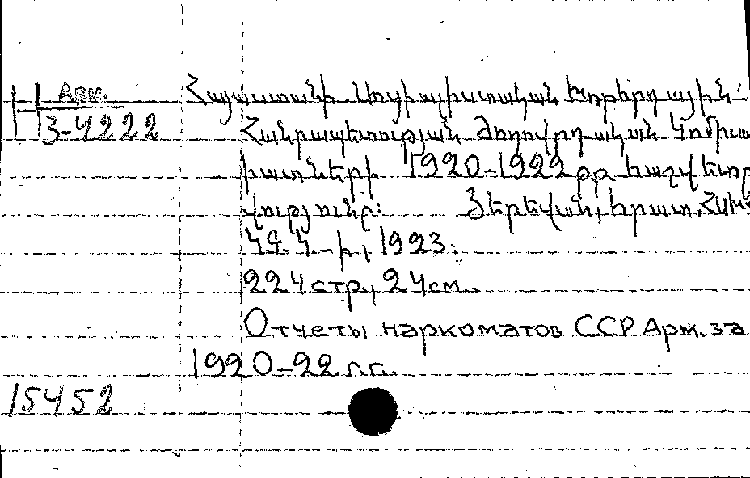 Арм.
3-4222
Հայաստանի Սոցիալիստական Խորհրդային
Հանրապետության Ժողովրդական Կոմիսա
րատների 1920-1922 թթ հաշվետվու
թյունը: Յերևան, հրատ. ՀՍԽՀ
ԿԳԿ-ի, 1923.
224 стр, 24 см.
Отчеты наркоматов ССР Арм. за
1920-22 г.г.
15452